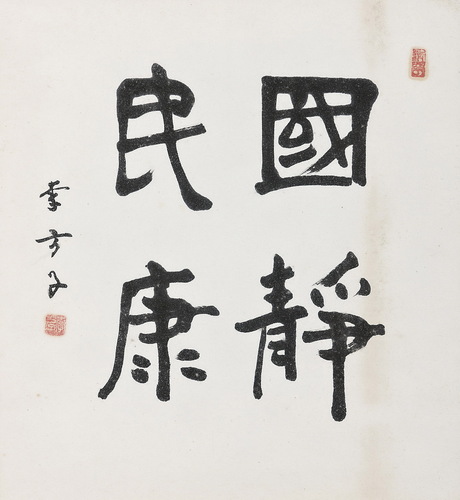 國靜
民康
李方子